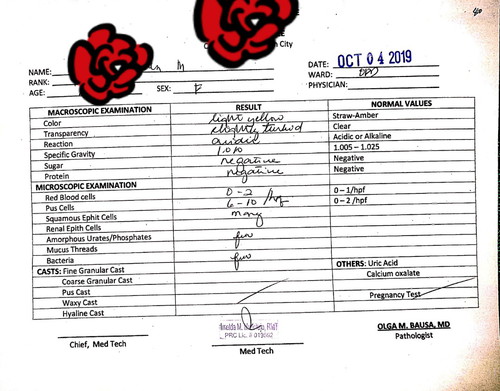 40
City
NAME: M DATE: OCT 04 2019
RANK: WARD: OPD
AGE: SEX: F PHYSICIAN:
MACROSCOPIC EXAMINATION RESULT NORMAL VALUES
Color light yellow Straw-Amber
Transparency slightly turbid Clear
Reaction acidic Acidic or Alkaline
Specific Gravity 1.010 1.005 - 1.025
Sugar negative Negative
Protein negative Negative
MICROSCOPIC EXAMINATION
Red Blood cells 0-2 /hpf 0 - 1/hpf
Pus Cells 6-10 /hpf 0 - 2 /hpf
Squamous Ephit Cells many
Renal Epith Cells
Amorphous Urates/Phosphates few
Mucus Threads
Bacteria few
CASTS: Fine Granular Cast OTHERS: Uric Acid
Coarse Granular Cast Calcium oxalate
Pus Cast
Waxy Cast Pregnancy Test
Hyaline Cast
RMT
PRC Lic. #
OLGA M. BAUSA, MD
Chief, Med Tech Med Tech Pathologist